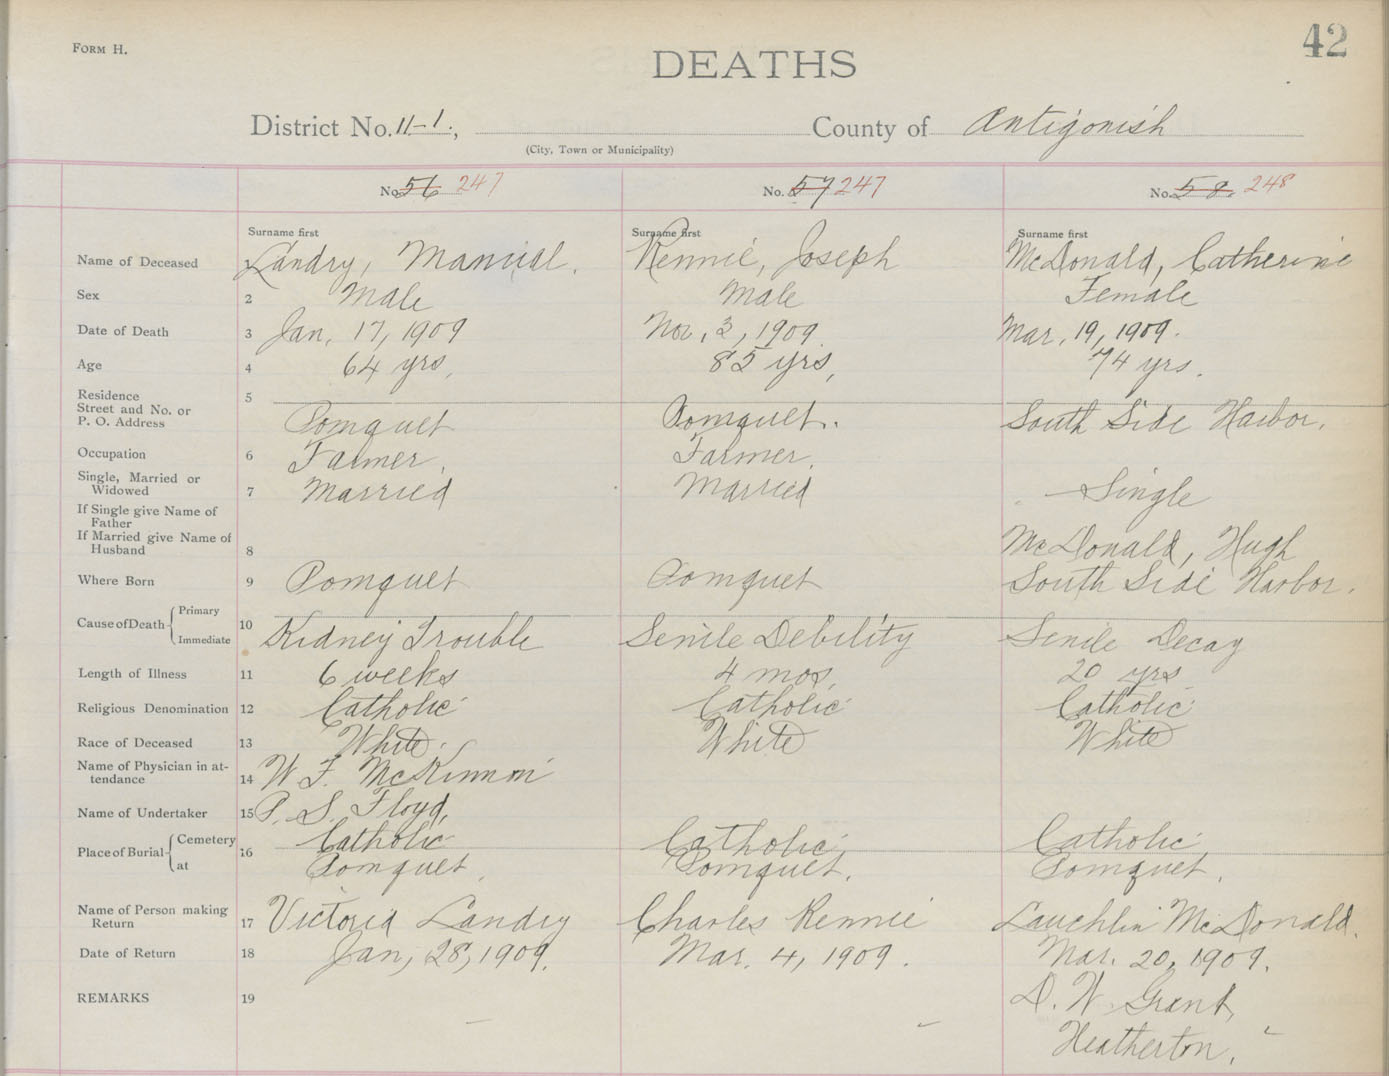 FORM H.
42
DEATHS
District No. 11-1., County of Antigonish
(City, Town or Municipality)
No. 56 247 No. 57 247 No. 58. 248
Surname first Surname first Surname first
Name of Deceased Landry, Manuel. Rennie, Joseph McDonald, Catherine
Sex 2 Male Male Female
Date of Death 3 Jan. 17, 1909 Nov. 3, 1909. Mar. 19, 1909.
Age 4 64 yrs. 85 yrs, 74 yrs.
Residence 5
Street and No. or
P. O. Address Pomquet Pomquet. South Side Harbor.
Occupation 6 Farmer. Farmer.
Single, Married or
Widowed 7 Married Married Single
If Single give Name of
Father
If Married give Name of
Husband 8 McDonald, Hugh
Where Born 9 Pomquet Pomquet South Side Harbor.
Cause of Death Primary 10
Immediate Kidney Trouble Senile Debility Senile Decay
Length of Illness 11 6 weeks 4 mos. 20 yrs
Religious Denomination 12 Catholic Catholic Catholic
Race of Deceased 13 White. White White
Name of Physician in at-
tendance 14 W. F. McKinnon
Name of Undertaker 15 P. S. Floyd.
Place of Burial Cemetery 16 Catholic Catholic Catholic
at Pomquet. Pomquet. Pomquet.
Name of Person making
Return 17 Victoria Landry Charles Rennie Lauchlin McDonald.
Date of Return 18 Jan, 28, 1909. Mar. 4, 1909. Mar. 20, 1909.
REMARKS 19 D. W. Grant,
Heatherton.